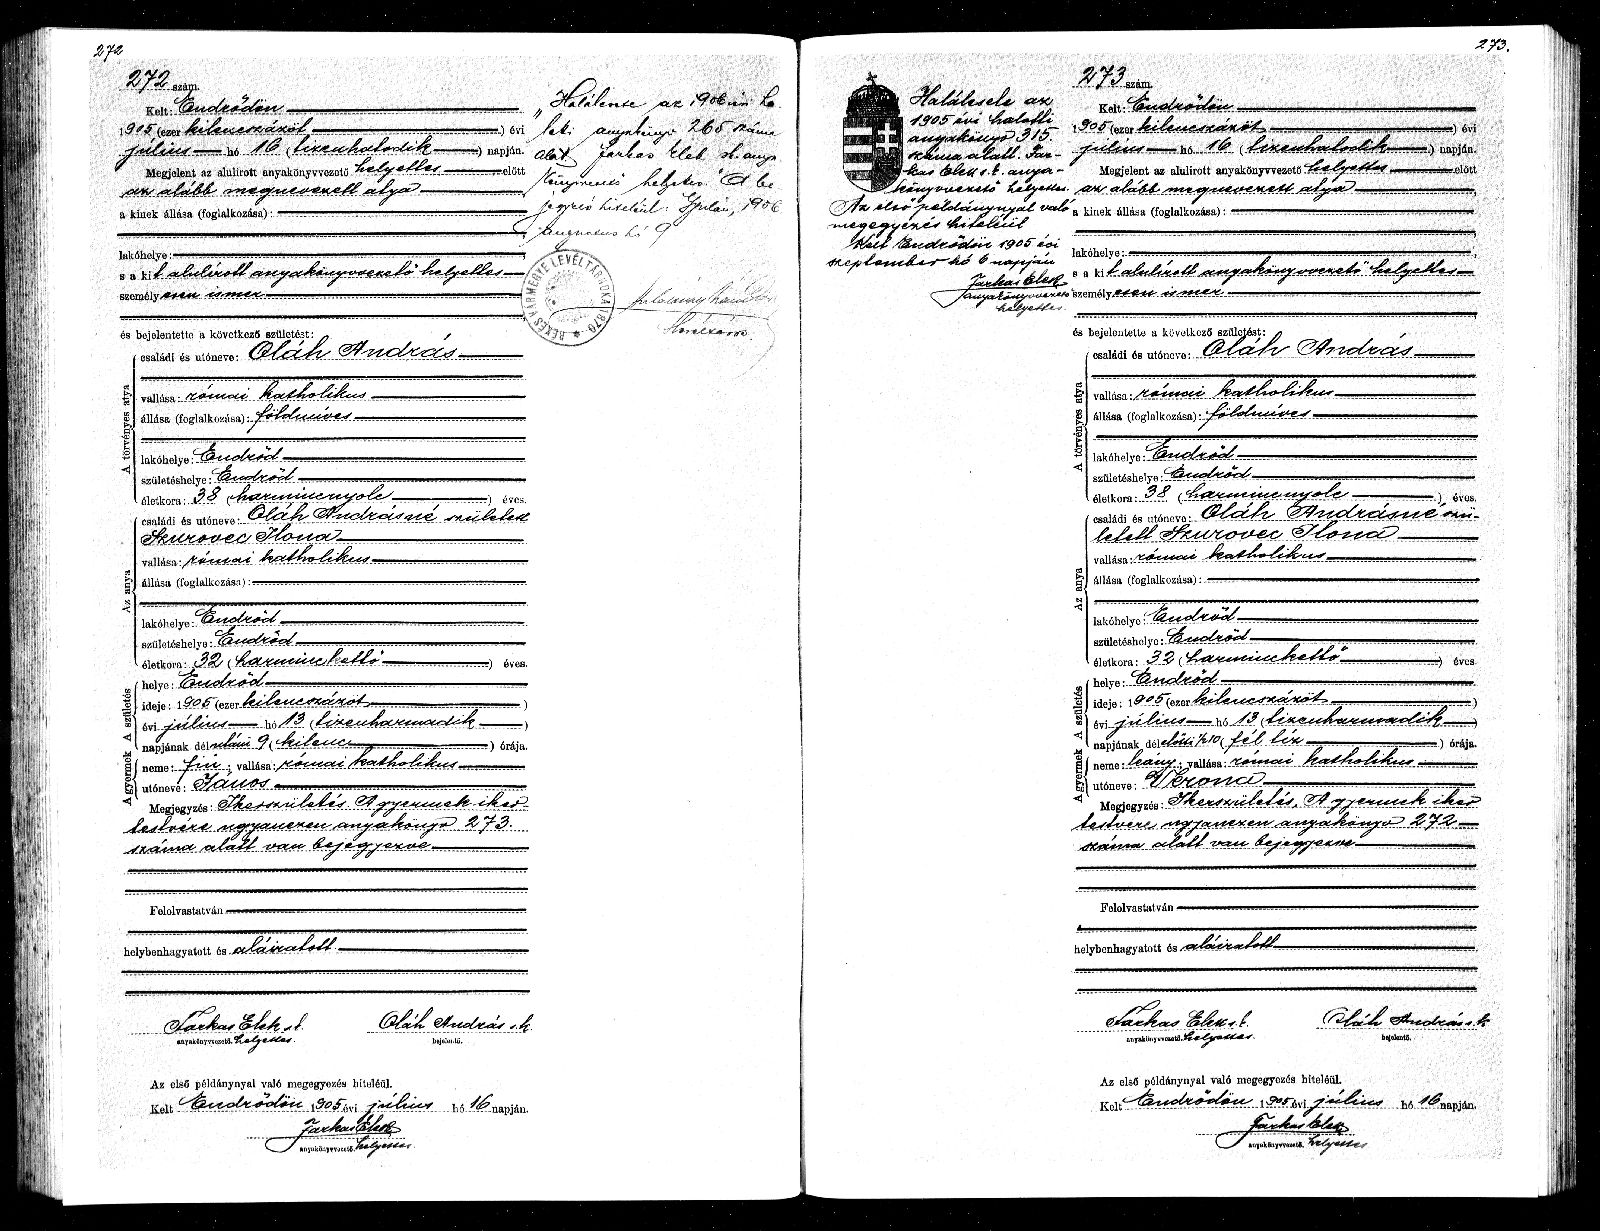 272
272 szám.
Kelt: Endrődön
1905 (ezer kilenczszázöt) évi
július hó 16 (tizenhatodik) napján.
Megjelent az alulirott anyakönyvvezető helyettes előtt
az alább megnevezett atya
a kinek állása (foglalkozása):
lakóhelye:
s a kit alulírott anyakönyvvezető helyettes
személyesen ismer
és bejelentette a következő születést:
A törvényes atya
családi és utóneve: Oláh András
vallása: római katholikus
állása (foglalkozása): földmíves
lakóhelye: Endrőd
születéshelye: Endrőd
életkora: 38 (harmincnyolc) éves.
Az anya
családi és utóneve: Oláh Andrásné született
Szurovec Ilona
vallása: római katholikus
állása (foglalkozása):
lakóhelye: Endrőd
születéshelye: Endrőd
életkora: 32 (harminckettő) éves.
A születés
helye: Endrőd
ideje: 1905 (ezer kilencszázöt)
évi július hó 13 (tizenharmadik)
napjának délutáni 9 (kilenc) órája.
A gyermek
neme: fiu; vallása: római katholikus
utóneve: János
Megjegyzés: Ikerszületés. A gyermek iker
testvére ugyanezen anyakönyv 273.
száma alatt van bejegyezve
Felolvastatván
helybenhagyatott és aláiratott
Farkas Elek s. k. Oláh András s. k.
anyakönyvvezető. helyettes. bejelentő.
Az első példánynyal való megegyezés hiteléül.
Kelt Endrődön 1905 évi július hó 16 napján.
Farkas Elek
anyakönyvvezető. helyettes
"Halálesete az 1906 évi ha-
lati anyakönyv 265 száma
alatt Farkas Elek sk. anya-
könyvvezető helyettes." A be
jegyzés hiteléül: Gyulán, 1906
augusztus hó 9
BÉKÉS VÁRMEGYE LEVÉLTÁRNOKA 1876
273.
Halálesete az
1905 évi halotti
anyakönyv 315
száma alatt. Far-
kas Elek s. k. anya-
könyvvezető helyettes.
Az első példánynyal való
megegyezés hiteléül
Kelt Endrődön 1905 évi
szeptember hó 6 napján
Farkas Elek
anyakönyvvezető
helyettes.
273 szám.
Kelt: Endrődön
1905 (ezer kilencszázöt) évi
július hó 16 (tizenhatodik) napján.
Megjelent az alulirott anyakönyvvezető helyettes előtt
az alább megnevezett atya
a kinek állása (foglalkozása):
lakóhelye:
s a kit alulírott anyakönyvvezető helyettes
személyesen ismer
és bejelentette a következő születést:
A törvényes atya
családi és utóneve: Oláh András
vallása: római katholikus
állása (foglalkozása): földmíves
lakóhelye: Endrőd
születéshelye: Endrőd
életkora: 38 (harmincnyolc) éves.
Az anya
családi és utóneve: Oláh Andrásné szü-
letett Szurovec Ilona
vallása: római katholikus
állása (foglalkozása):
lakóhelye: Endrőd
születéshelye: Endrőd
életkora: 32 (harminckettő) éves.
A születés
helye: Endrőd
ideje: 1905 (ezer kilencszázöt)
évi július hó 13 (tizenharmadik)
napjának délelőtti ½10 (fél tíz) órája.
A gyermek
neme: leány; vallása: római katholikus
utóneve: Verona
Megjegyzés: Ikerszületés. A gyermek iker
testvére ugyanezen anyakönyv 272
száma alatt van bejegyezve
Felolvastatván
helybenhagyatott és aláiratott
Farkas Elek s. k. Oláh András s. k.
anyakönyvvezető. helyettes. bejelentő.
Az első példánynyal való megegyezés hiteléül.
Kelt Endrődön 1905 évi július hó 16 napján.
Farkas Elek
anyakönyvvezető. helyettes